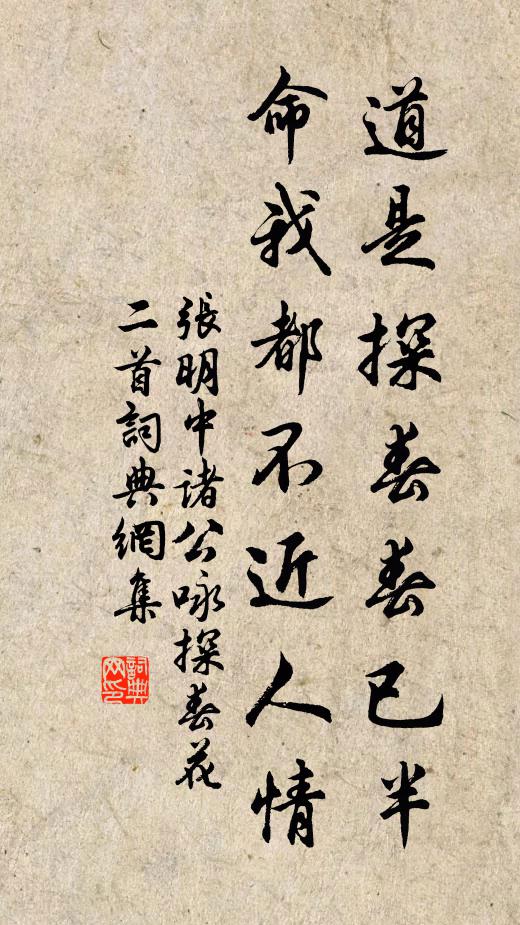 道是探春春已半
命我都不近人情
張明中諸公咏探春花
二首詞典網集
詞典网印